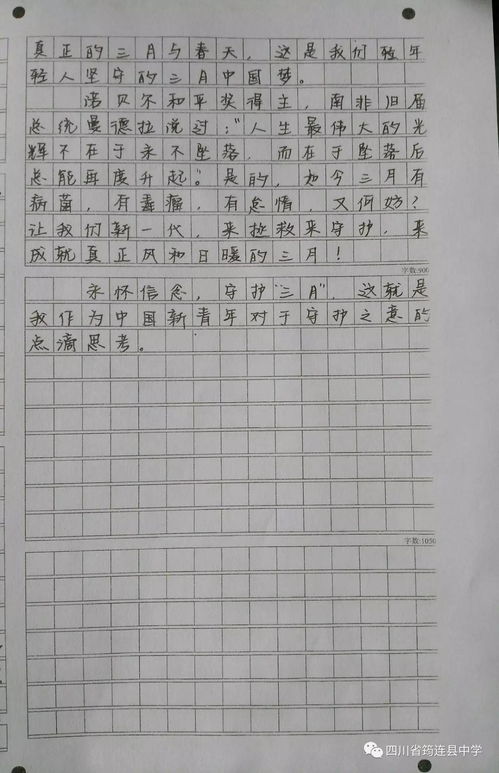 真正的三月与春天，这是我们轻年
轻人坚守的三月中国梦。
陪贝尔和平奖得主，南非旧届
总统曼德拉说过："人生最伟大的光
辉不在于永不坠落，而在于坠落后
总能再度升起"。是的，如今三月有
病菌，有毒瘤，有怠惰，又何妨？
让我们新一代，来拯救来守护，来
成就真正风和日暖的三月！
字数:900
永怀信念，守护"三月"，这就是
我作为中国新青年对于守护之意的
点滴思考。
字数:1050
四川省筠连县中学